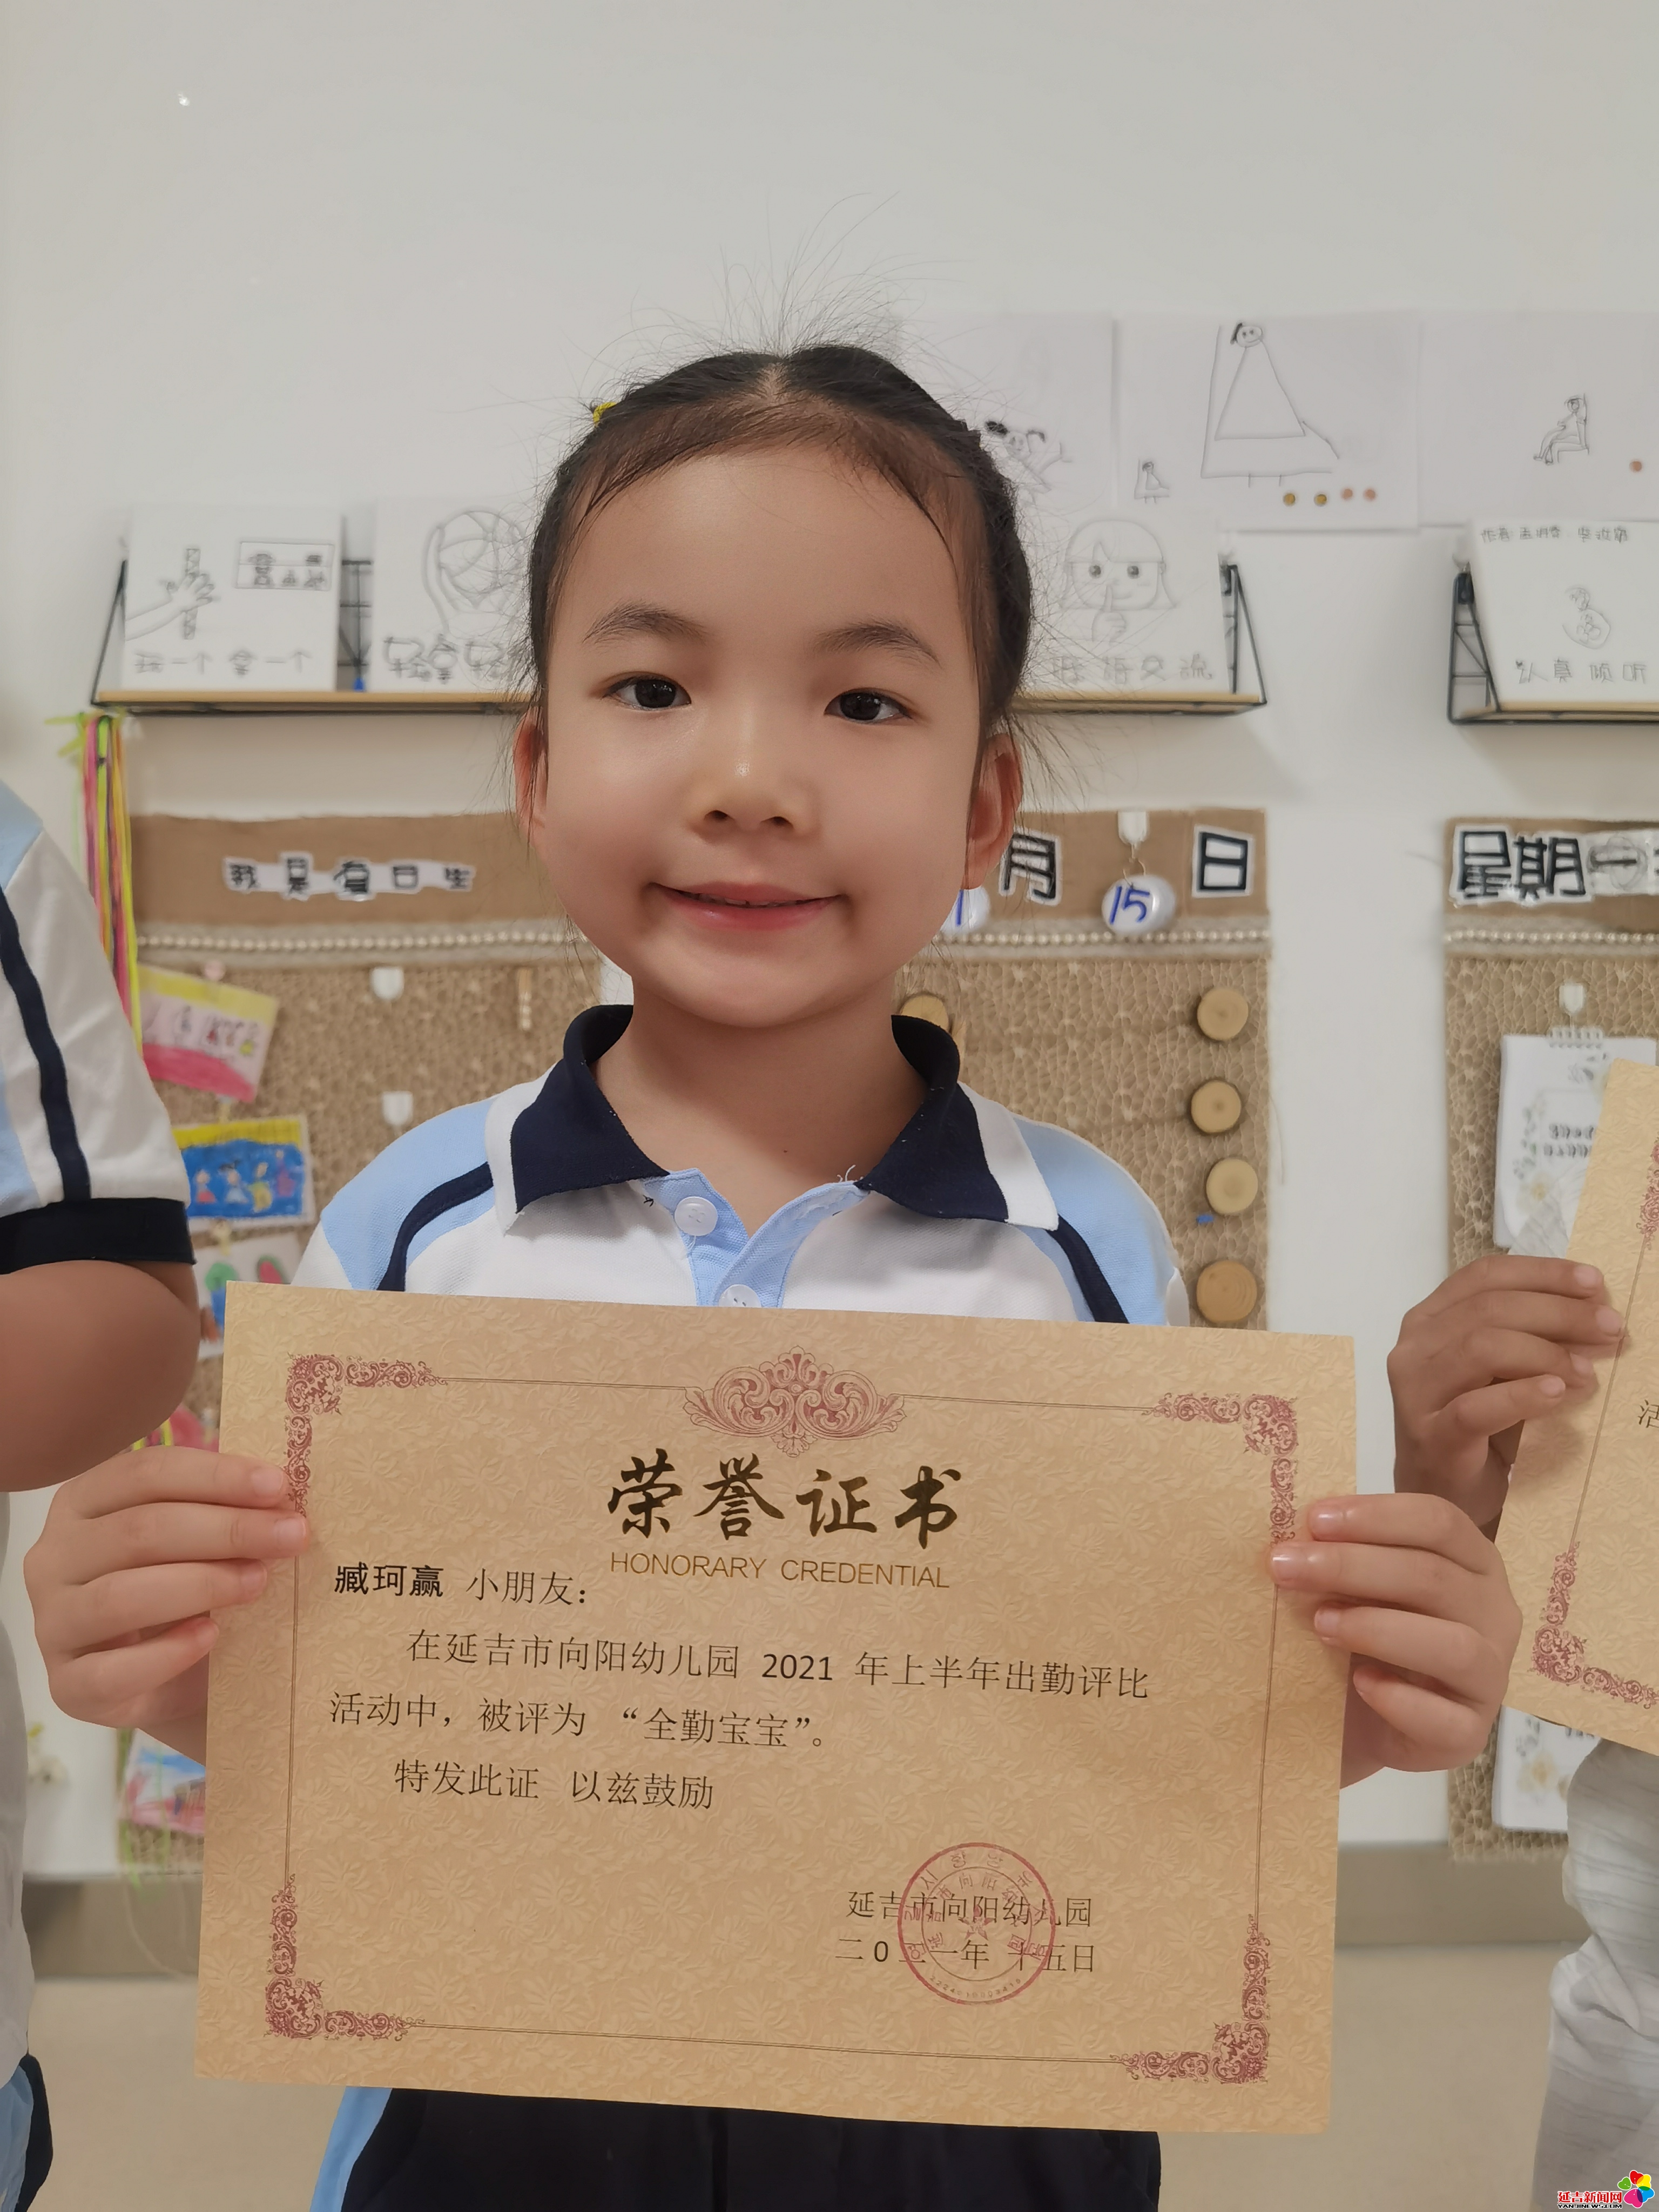 玩一个 拿一个
轻拿轻
作者
认真倾听
我是值日生
月
日
15
星期一
荣誉证书
HONORARY CREDENTIAL
臧珂赢 小朋友：
在延吉市向阳幼儿园 2021 年上半年出勤评比
活动中，被评为 “全勤宝宝”。
特发此证 以兹鼓励
延吉市向阳幼儿园
二0二一年 十五日
活
延吉新闻网
YANJINEWS.COM